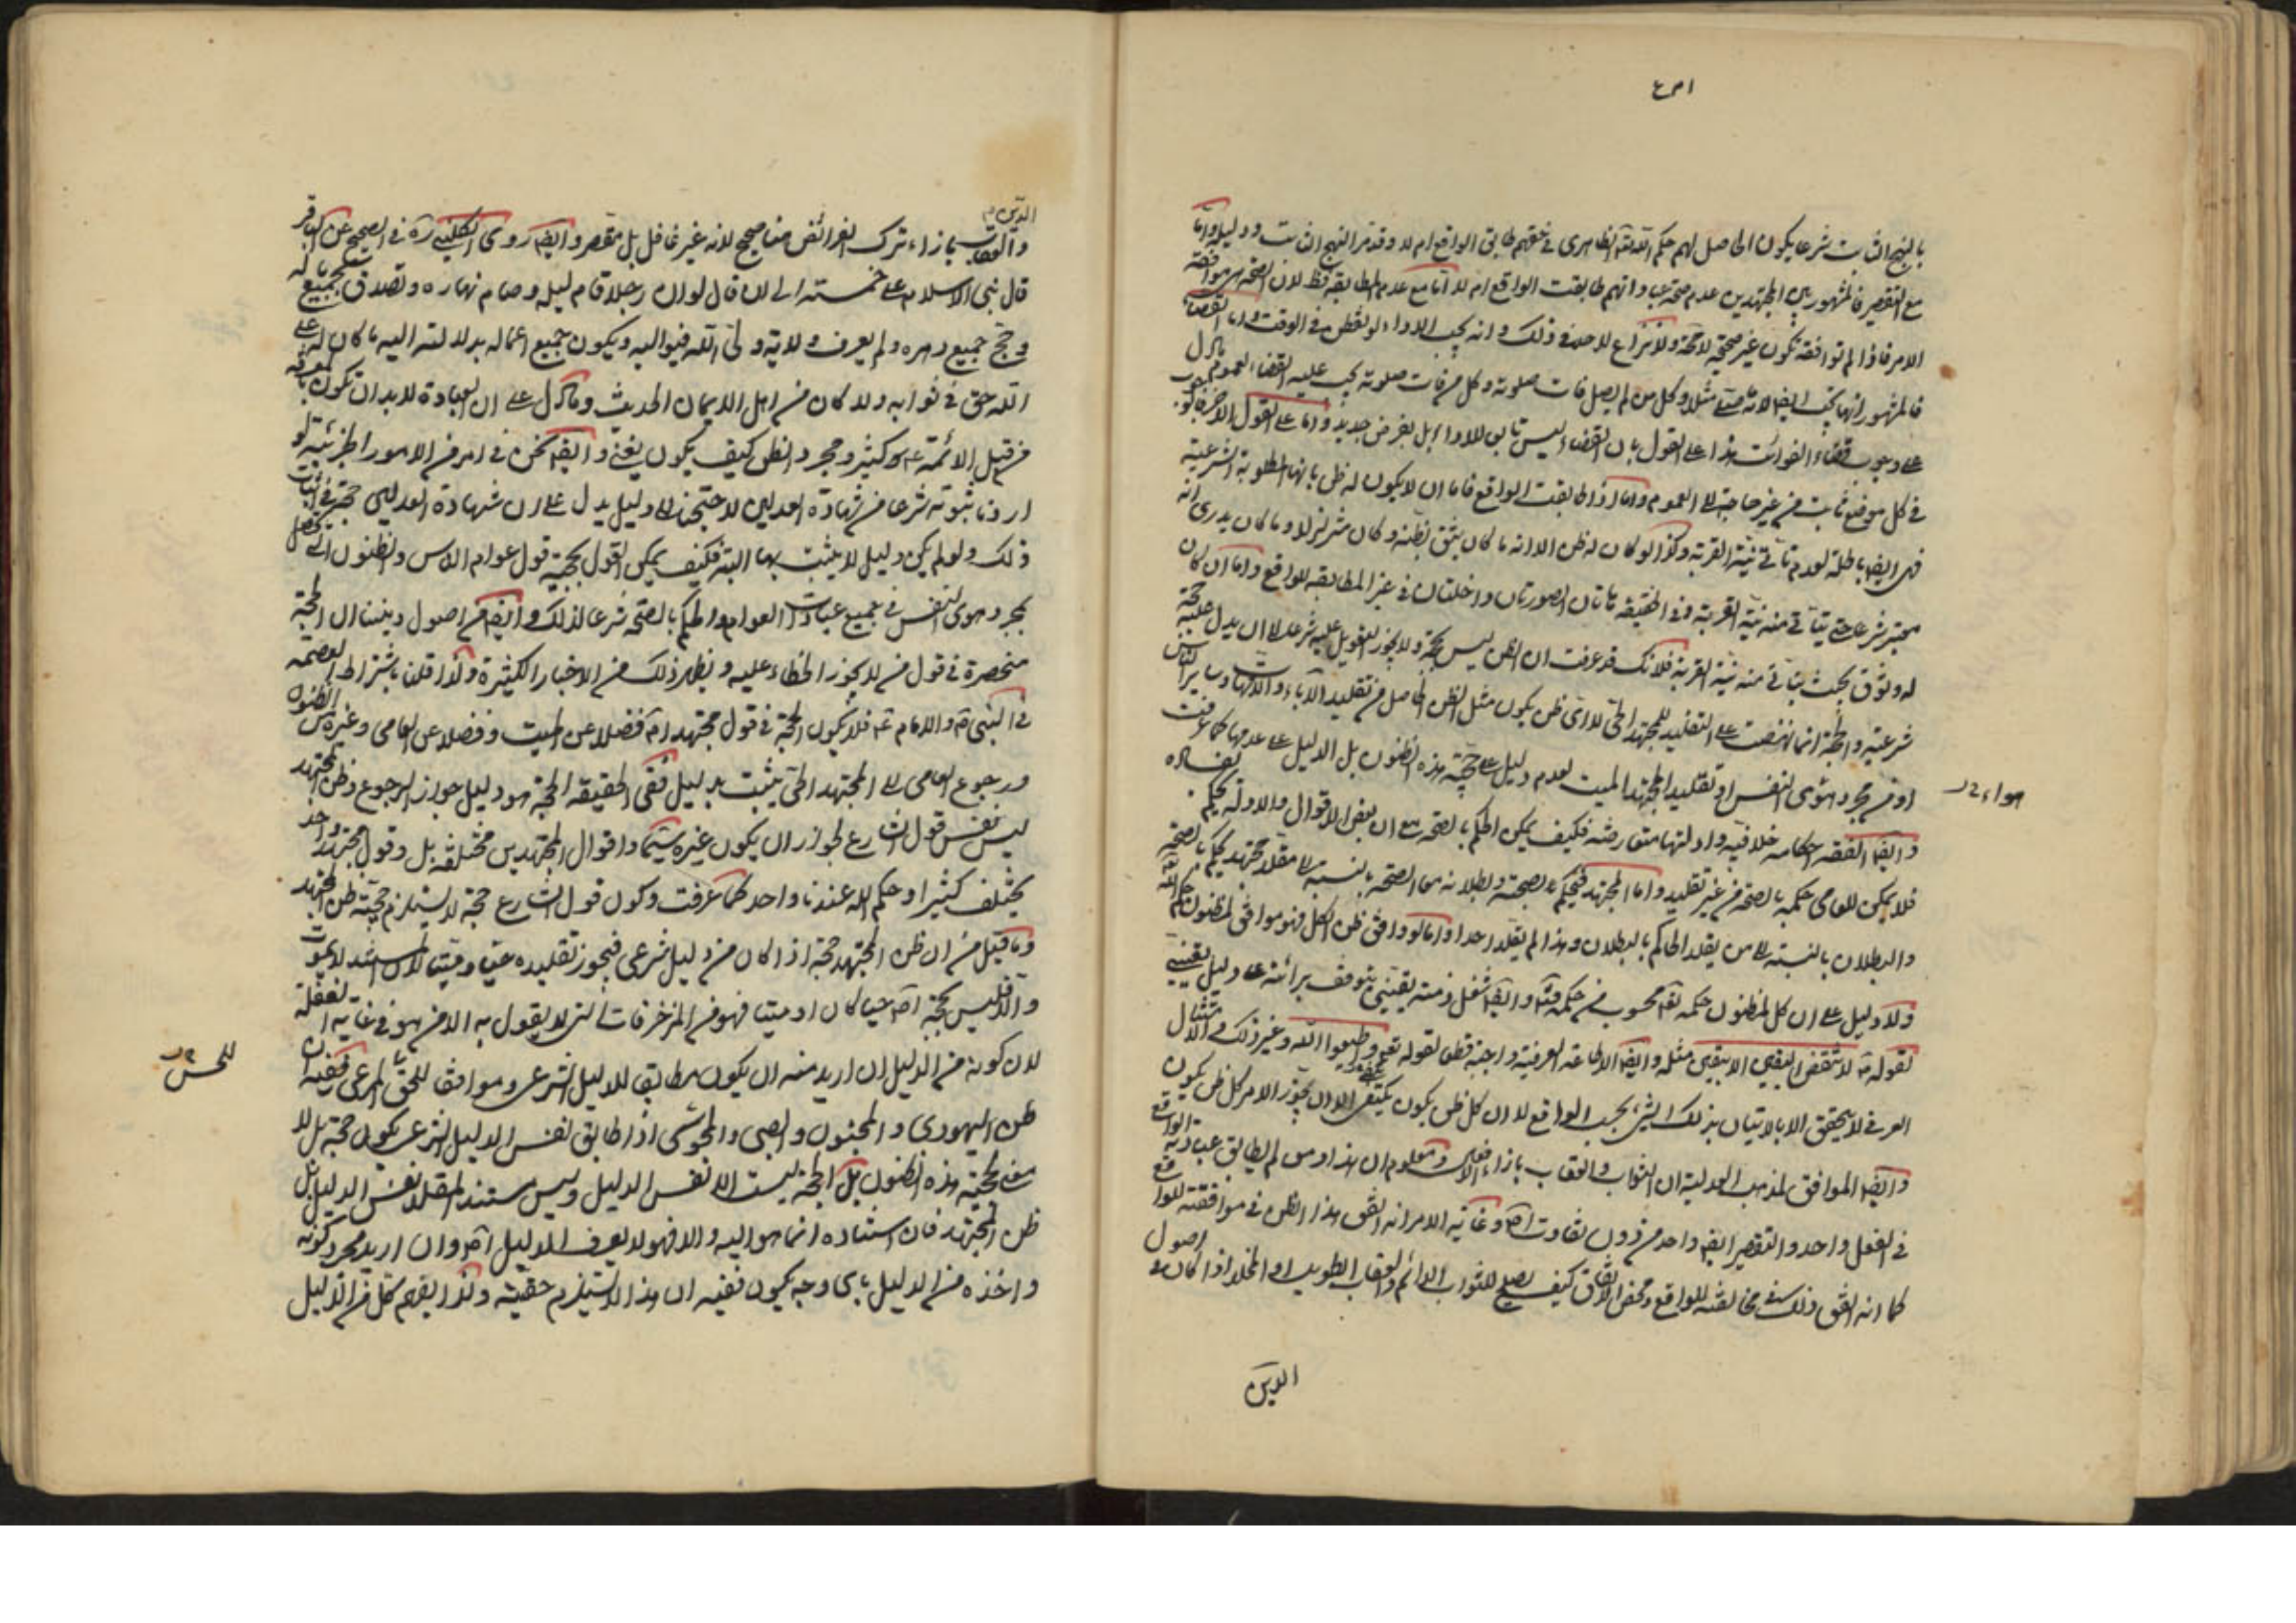 بالنهج الثابت شرعا يكون الحاصل لهم حكم الله الظاهرى فى حقهم طابق الواقع ام لا وقد مر النهج الثابت ودليله واما
مع التقصير فالمشهور بين المجتهدين عدم صحة عباداتهم طابقت الواقع ام لا اما مع عدم المطابقة فظ لان الصحة هى موافقة
الامر فاذا لم توافقه تكون غير صحيحة لا محة ولا نزاع لاحد فى ذلك وانه يجب الاداء لو تفطن فى الوقت واما القضاء
فالمشهور انها يجب ايضا لانه مثلا وكل من لم يصل فات صلوته وكل من فات صلوته يجب عليه القضاء لعموم ما دل
على وجوب قضاء الفوائت هذا على القول بان القضاء ليس تابع للاداء بل بفرض جديد واما على القول الاخر
فى كل موضع ثابت من غير حاجة الى العموم واما اذا طابقت الواقع فاما ان لا يكون له ظن بانها المطلوبة الشرعية
فهى ايضا باطلة لعدم تأتى نية القربة وكذا لو كان له ظن الا انه ما كان يثق بظنه وكان متزلزلا وما كان يدرى انه
معتبر شرعا حتى يتأتى منه نية القربة وفى الحقيقة هاتان الصورتان داخلتان فى غير المطابقة للواقع واما ان كان
له وثوق بحيث يتأتى منه نية القربة فلانك قد عرفت ان الظن ليس بحجة ولا يجوز التعويل عليه شرعا الا ان يدل عليه حجة
شرعية والحجة انما نهضت على التقليد للمجتهد الحى لا اى ظن يكون مثل الظن الحاصل من تقليد الآباء والامهات وساير الناس
او من مجرد هوى النفس او تقليد المجتهد الميت لعدم دليل على حجية هذه الظنون بل الدليل على عدمها كما عرفت
وايضا الفقه احكامه خلافية وادلتها متعارضة فكيف يمكن الحكم بالصحة مع ان بعض الاقوال والادلة يحكم بفساده
فلا يمكن للعامى حكمه بالصحة من غير تقليد واما المجتهد فيحكم بالصحة وبطلانه مع الصحة بالنسبة الى مقلد مجتهد يحكم بالصحة
والبطلان بالنسبة الى من يقلد الحاكم بالبطلان وهذا لم يقلد احدا واما لو وافق ظن الكل فهو موافق لمظنون حكم الله
ولا دليل على ان كل مظنون حكمه تعالى محسوب من حكمه وايضا شغل ذمته يقينى يتوقف برائته على دليل يقينى
لقوله لا تنقض اليقين الا بيقين مثله وايضا الاطاعة العرفية واجبة قطعا لقوله تعالى واطيعوا الله وغير ذلك والامتثال
العرفى لا يتحقق الا بالاتيان بذلك الشئ بحسب الواقع لا ان كل ظن يكون يكتفى الا ان يجوز الامر كل ظن يكون
وايضا الموافق لمذهب العدلية ان الثواب والعقاب بازاء الافعال ومعلوم ان هذا ومن لم يطابق عبادته الواقع
فى الفعل واحد والتقصير ايضا واحد من دون تفاوت اصلا وغاية الامر انه اتفق هذا الظن فى موافقته للواقع
كما انه اتفق ذلك فى مخالفته للواقع ومحض الاتفاق كيف يصلح للثواب الدائم والعقاب الطويل او المخلد اذا كان من اصول
الدين
الدين
والعقاب بازاء ترك الفرائض منا صحيح لانه غير غافل بل مقصر وايضا روى الكلينى ره فى الصحيح عن الباقر
قال بنى الاسلام على خمسة الى ان قال لو ان رجلا قام ليله وصام نهاره وتصدق بجميع ماله
وحج جميع دهره ولم يعرف ولاية ولى الله فيواليه ويكون جميع اعماله بدلالته اليه ما كان له على
الله حق فى ثوابه ولا كان من اهل الايمان الحديث وما دل على ان العبادة لا بد ان تكون بمعرفة
من قبل الائمة ع كثير ومجرد الظن كيف يكون يغنى وايضا نحن فى امر من الامور الجزئية لو
اردنا ثبوته شرعا من شهادة العدلين لاحتجنا الى دليل يدل على ان شهادة العدلين حجة فى اثبات
ذلك ولو لم يكن دليل لا يثبت بها البتة فكيف يمكن القول بحجية قول عوام الناس والظنون التى تحصل
بمجرد هوى النفس فى جميع عبادات العوام والحكم بالصحة شرعا لذلك وايضا من اصول ديننا ان الحجة
منحصرة فى قول من لا يجوز الخطاء عليه ويظهر ذلك من الاخبار الكثيرة ولذا قلنا باشتراط العصمة
فى النبى ص والامام ع فلا يكون الحجة فى قول مجتهد اصلا فضلا عن الميت وفضلا عن العامى وغيره من الظنون
ورجوع العامى الى المجتهد الحى يثبت بدليل ففى الحقيقة الحجة هو دليل جواز الرجوع وظن المجتهد
ليس نفس قول الشارع لجواز ان يكون غيره سيما واقوال المجتهدين مختلفة بل وقول مجتهد واحد
يختلف كثيرا وحكم الله عندنا واحد كما عرفت وكون قول الشارع حجة لا يستلزم حجية ظن المجتهد
وما قيل من ان ظن المجتهد حجة اذا كان من دليل شرعى فيجوز تقليده حيا وميتا لان المستند لا يموت
والا فليس بحجة اصلا حيا كان او ميتا فهو من المزخرفات التى لا يقول به الا من هو فى غاية الغفلة
لان كونه من الدليل ان اريد منه ان يكون مطابقا للدليل الشرعى وموافقا للحق المرعى ففيه ان
ظن اليهودى والمجنون والصبى والمجوسى اذا طابق نفس الدليل الشرعى يكون حجة بل لا
معنى لحجية هذه الظنون بل الحجة ليست الا نفس الدليل وليس مستند المقلد نفس الدليل بل
ظن المجتهد فان استناده انما هو اليه والا فهو لا يعرف الدليل اصلا وان اريد مجرد كونه
واخذه من الدليل باى وجه يكون ففيه ان هذا لا يستلزم حقيته ولذا يفهم كل من الدليل